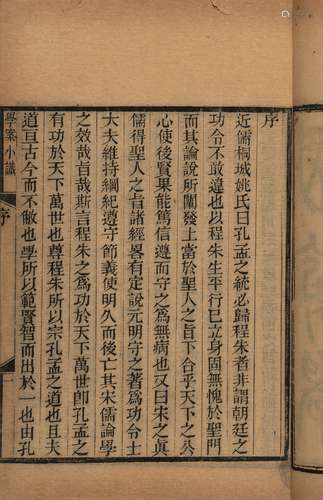 序
近儒桐城姚氏曰孔孟之統必歸程朱者非謂朝廷之
功令不敢違也以程朱生平行已立身固無愧於聖門
而其論說所闡發上當於聖人之旨下合乎天下之公
心使後賢果能篤信遵而守之為無病也又曰朱之眞
儒得聖人之旨諸經畧有定說元明守之著為功令士
大夫維持綱紀遵守節義使明久而後亡其宋儒論學
之效哉旨哉斯言程朱之為功於天下萬世卽孔孟之
有功於天下萬世也尊程朱所以宗孔孟之道也且夫
道亘古今而不敝也學所以範賢智而出於一也由孔
學案小識
序